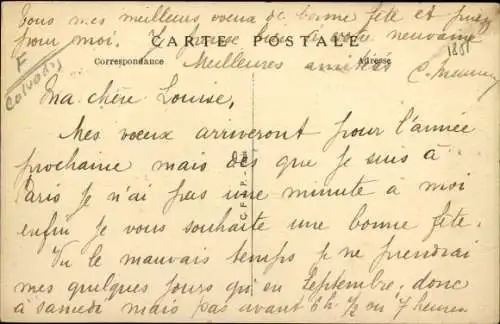 Tous mes meilleurs voeux de bonne fête et priez
pour moi. Je pense bien à votre neuvaine
CARTE POSTALE
Correspondance
Adresse
1881
Meilleures amitiés
F
Calvados
Ma chère Louise,
Mes voeux arriveront pour l'année
prochaine mais dès que je suis à
Paris je n'ai pas une minute à moi
enfin je vous souhaite une bonne fête.
Vu le mauvais temps je ne prendrai
mes quelques jours qu'en Septembre. donc
à samedi mais pas avant 6h 1/2 ou 7 heures.